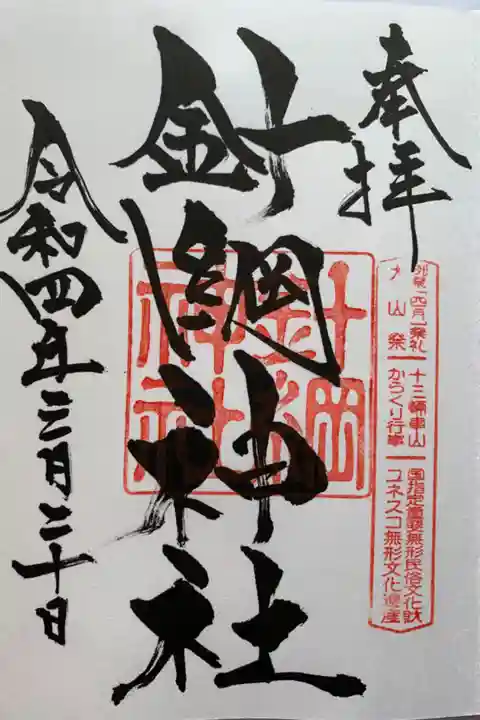 奉拝
四月 祭礼
犬山祭
十三輌車山
からくり行事
国指定重要無形民俗文化財
ユネスコ無形文化遺産
針綱神社
針綱神社
令和四年三月二十日